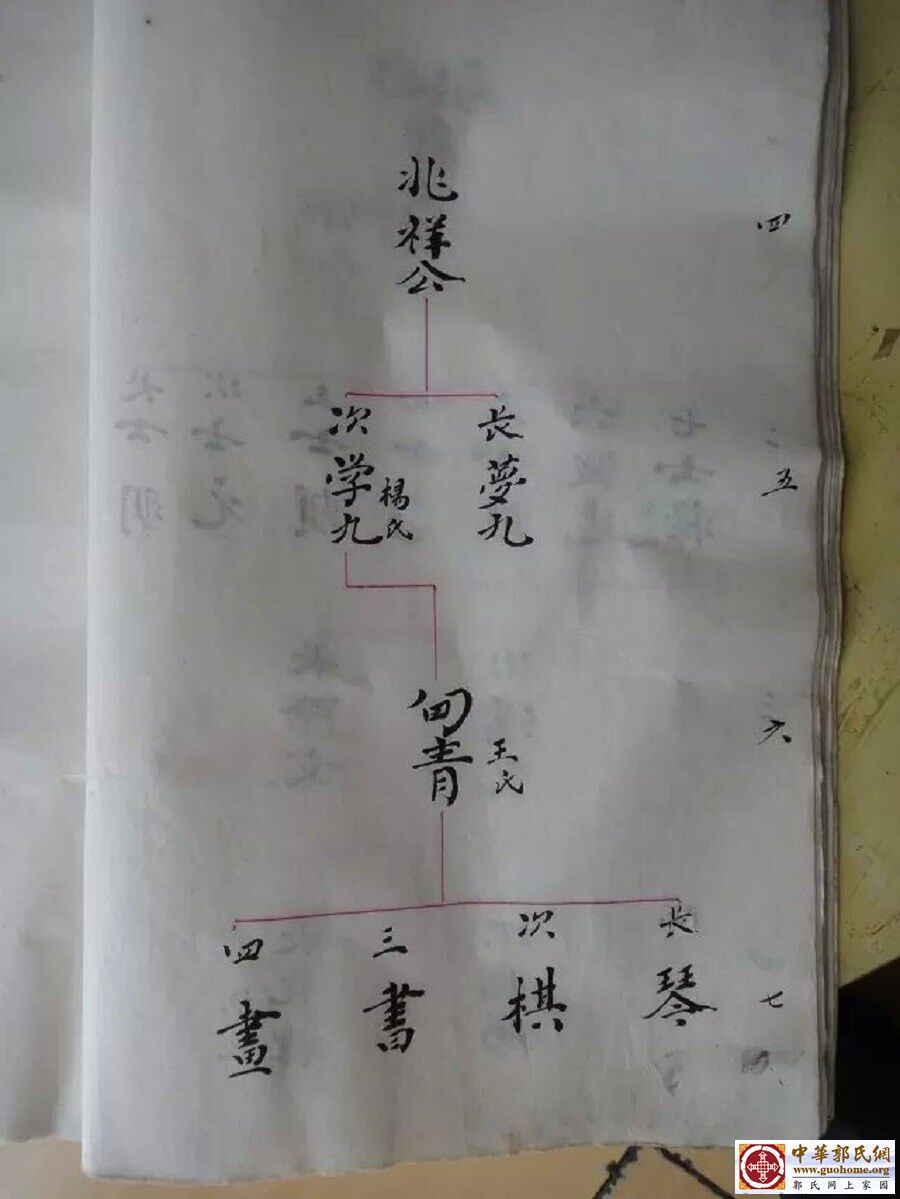 四
兆祥公
五
长夢九
次学九
楊氏
六
甸青
王氏
七
长琴
次棋
三書
四畫
中華郭氏網
www.guohome.org
郭氏网上家园